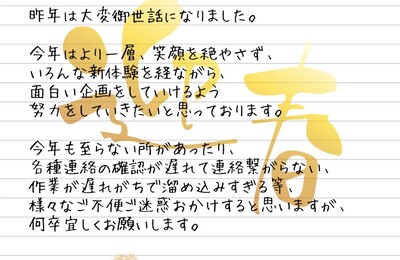 昨年は大変御世話になりました。
今年はより一層、笑顔を絶やさず、
いろんな新体験を経ながら、
面白い企画をしていけるよう
努力をしていきたいと思っております。
今年も至らない所があったり、
各種連絡の確認が遅れて連絡繋がらない、
作業が遅れがちで溜め込みすぎる等、
様々なご不便ご迷惑おかけすると思いますが、
何卒宜しくお願いします。
迎春